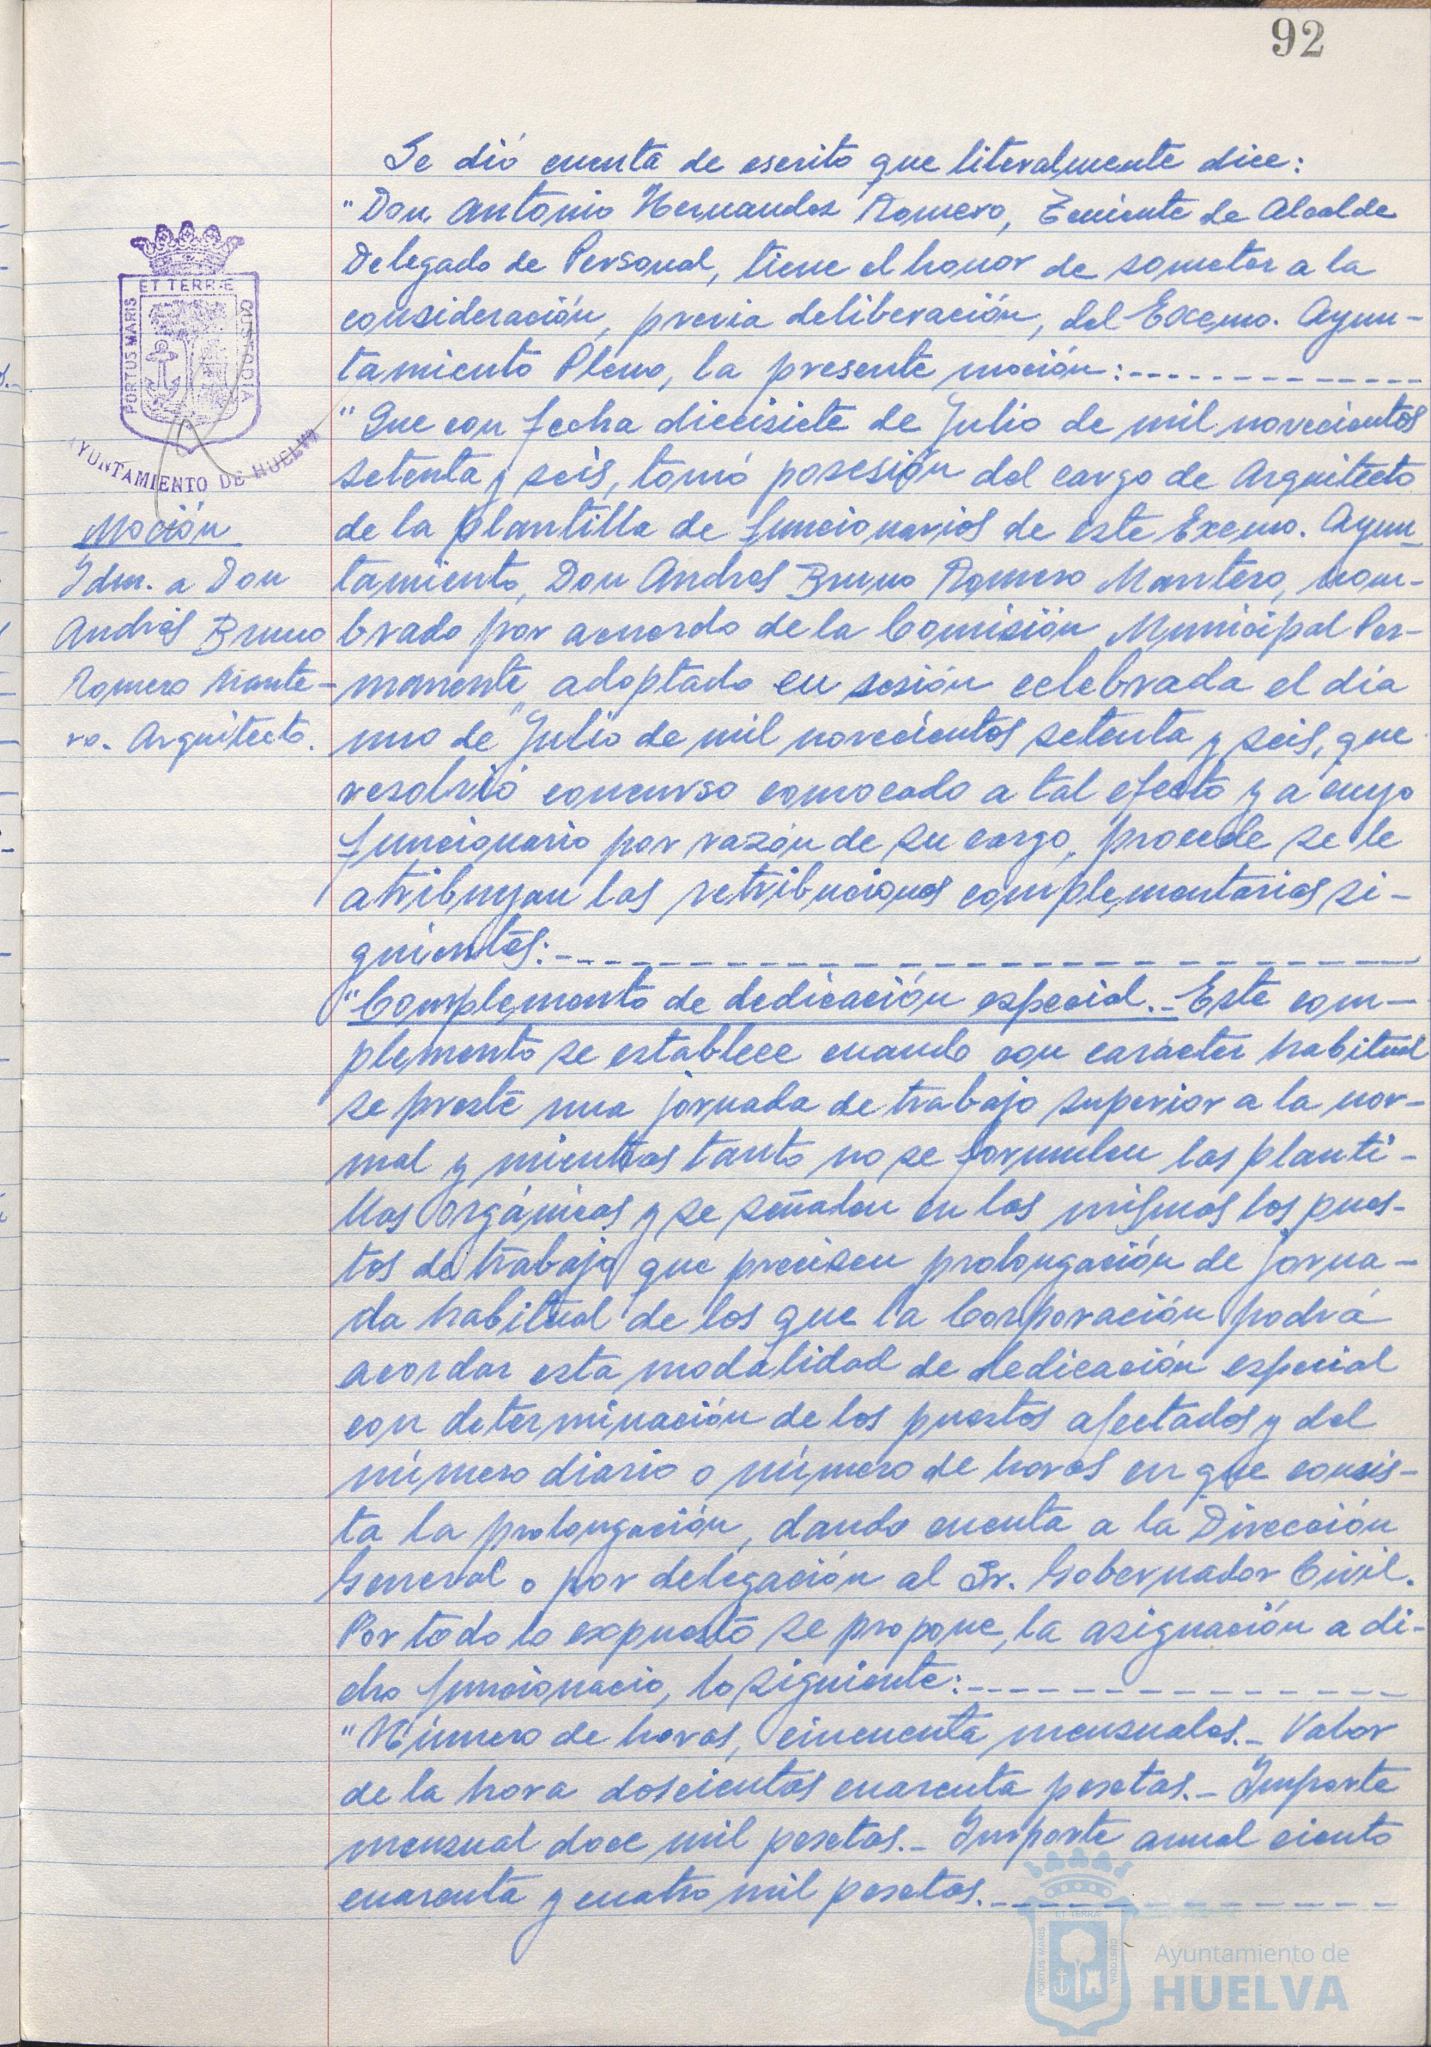 92
Se dió cuenta de escrito que literalmente dice:
"Don Antonio Hernandez Romero, Teniente de Alcalde
Delegado de Personal, tiene el honor de someter a la
consideración, previa deliberación, del Excmo. Ayun-
tamiento Pleno, la presente moción:
"Que con fecha diecisiete de Julio de mil novecientos
setenta y seis, tomó posesión del cargo de Arquitecto
de la plantilla de funcionarios de este Excmo. Ayun-
tamiento, Don Andres Bruno Romero Mantero, nom-
brado por acuerdo de la Comisión Municipal Per-
manente adoptado en sesión celebrada el dia
uno de Julio de mil novecientos setenta y seis, que
resolvió concurso convocado a tal efecto y a cuyo
funcionario por razón de su cargo, procede se le
atribuyan las retribuciones complementarias si-
guientes:
"Complemento de dedicación especial.- Este com-
plemento se establece cuando con carácter habitual
se preste una jornada de trabajo superior a la nor-
mal y mientras tanto no se formulen las planti-
llas orgánicas y se señalen en las mismas los pues-
tos de trabajo que precisen prolongación de jorna-
da habitual de los que la Corporación podrá
acordar esta modalidad de dedicación especial
con determinación de los puestos afectados y del
número diario o número de horas en que consis-
ta la prolongación, dando cuenta a la Dirección
General o por delegación al Sr. Gobernador Civil.
Por todo lo expuesto se propone, la asignación a di-
cho funcionacio, lo siguiente:
"Número de horas, cincuenta mensuales.- Valor
de la hora doscientas cuarenta pesetas.- Importe
mensual doce mil pesetas.- Importe anual ciento
cuarenta y cuatro mil pesetas.
ET TERRÆ
PORTUS MARIS
CUSTODIA
AYUNTAMIENTO DE HUELVA
Moción
Idm. a Don
Andrés Bruno
Romero Mante-
ro. Arquitecto.
ET TERRÆ
PORTUS MARIS
CUSTODIA
Ayuntamiento de
HUELVA